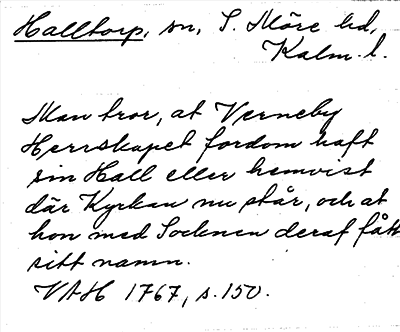 Halltorp, sn, S. Möre hd,
Kalm. l.
Man tror, at Verneby
Herrskapet fordom haft
sin Hall eller hemvist
där Kyrkan nu står, och at
hon med Socknen deraf fått
sitt namn.
VAH 1767, s. 150.